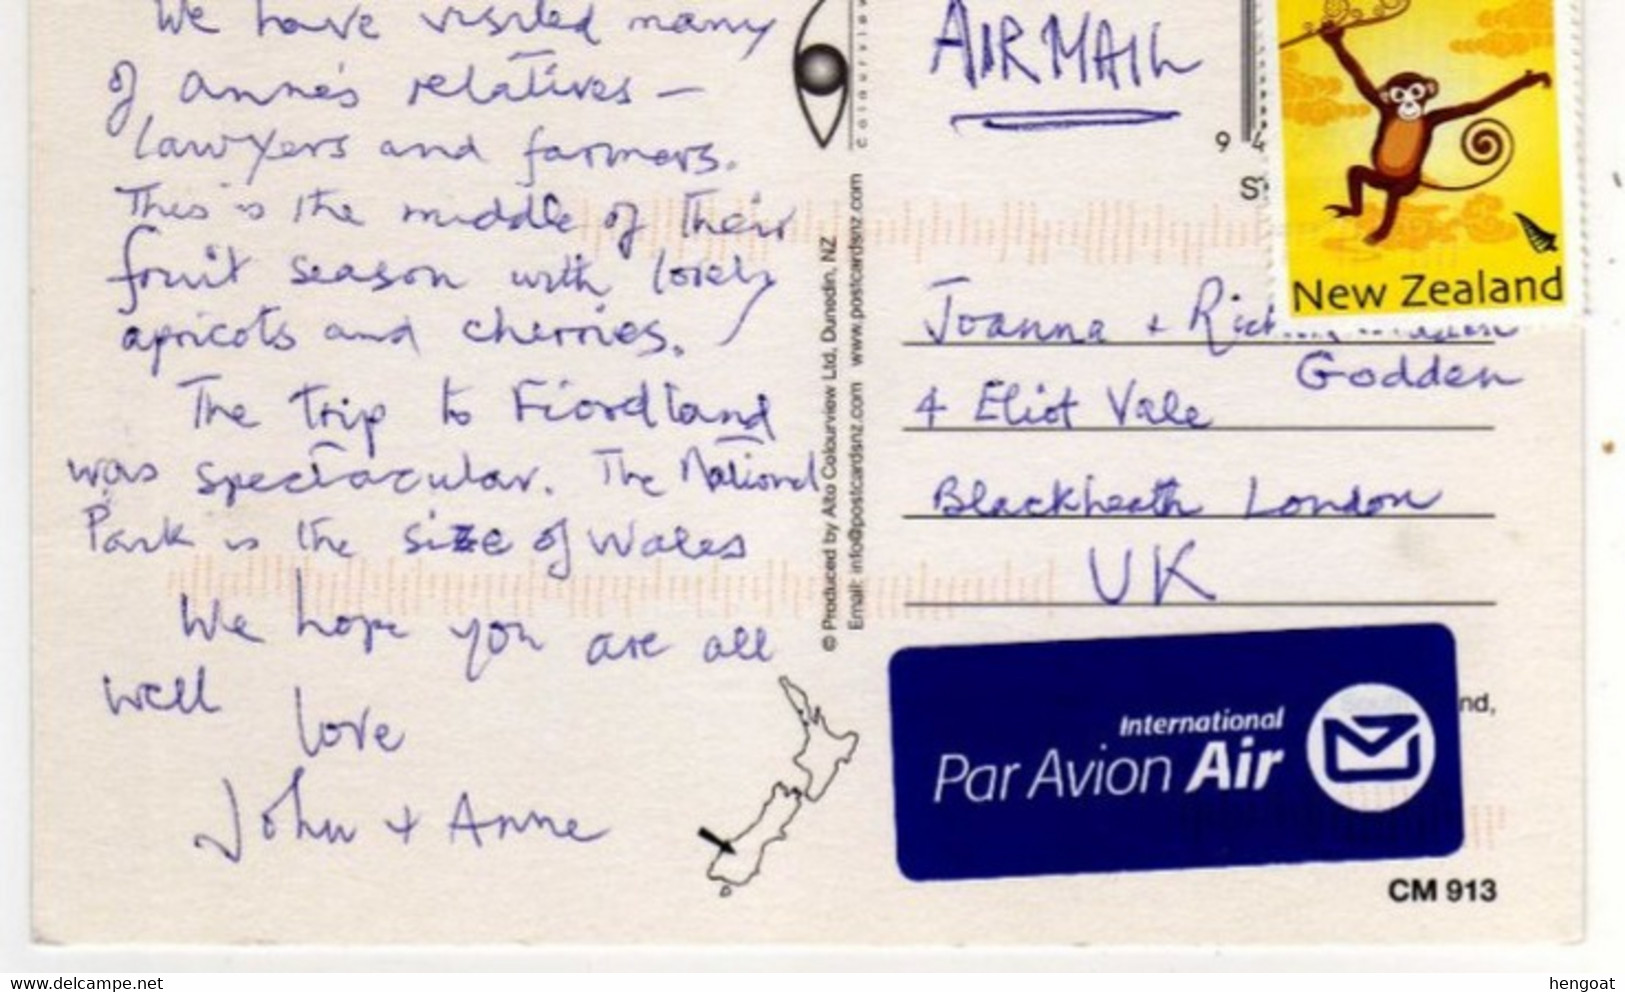 We have visited many
of Anne's relatives –
lawyers and farmers.
This is the middle of their
fruit season with lovely
apricots and cherries.
The trip to Fiordland
was spectacular. The National
Park is the size of Wales
We hope you are all
well
love
John + Anne
colourview
© Produced by Alto Colourview Ltd, Dunedin, NZ
Email: info@postcardsnz.com www.postcardsnz.com
AIR MAIL
9 4
New Zealand
Joanna +
Godden
4 Eliot Vale
Blackheath London
UK
International
Par Avion Air
nd,
CM 913
delcampe.net
hengoat